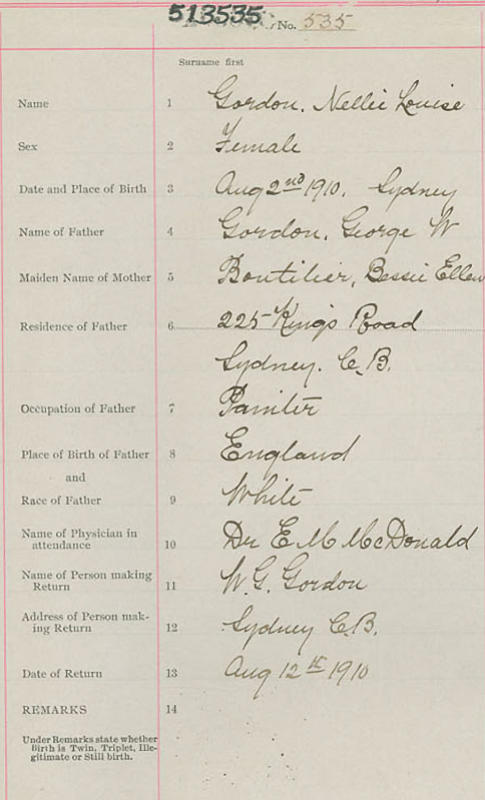 513535
No. 535
Surname first
Name 1 Gordon, Nellie Louise
Sex 2 Female
Date and Place of Birth 3 Aug 2nd 1910. Sydney
Name of Father 4 Gordon, George W
Maiden Name of Mother 5 Boutilier, Bessie Ellen
Residence of Father 6 225 Kings Road
Sydney. C.B.
Occupation of Father 7 Painter
Place of Birth of Father 8 England
and
Race of Father 9 White
Name of Physician in
attendance 10 Dr E M McDonald
Name of Person making
Return 11 W.G. Gordon
Address of Person mak-
ing Return 12 Sydney C.B.
Date of Return 13 Aug 12th 1910
REMARKS 14
Under Remarks state whether
Birth is Twin, Triplet, Ille-
gitimate or Still birth.